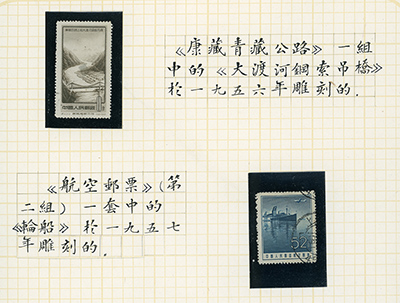 《康藏青藏公路》一組
中的《大渡河鋼索吊橋》
於一九五六年雕刻的.
中國人民郵政
《航空郵票》(第
二組)一套中的
《輪船》於一九五七
年雕刻的.
52